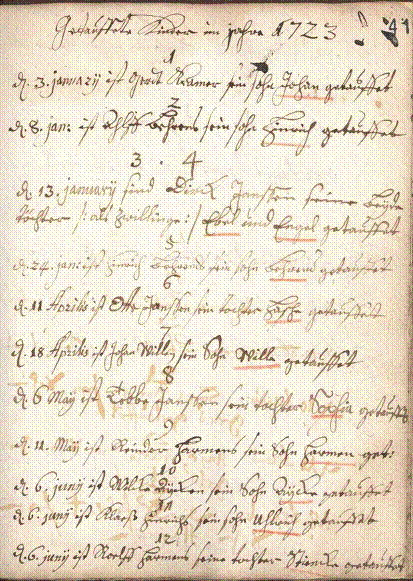 Getauffete Kinder im jahre 1723
41
1
d. 3. january ist Gerdt Kramer sein sohn Johan getauffet
2
d. 8. jan: ist Behrens sein sohn Hinrich getauffet
3. 4
d. 13. january sind Dirck Janssen seine beyde
töchter /: als zwillinge :/ und Engel getauffet
5
d. 24. jan: ist Hinrich Behrens sein sohn Behrend getauffet
6
d. 11 Aprilis ist Otto Janssen sein tochter getauffet
7
d. 18 Aprilis ist Johan Willms sein Sohn Willm getauffet
8
d. 6 May ist Tebbe Janssen sein tochter Sophia getauffet
9
d. 11. May ist Reinder Harmens sein Sohn Harmen get:
10
d. 6. juny ist sein Sohn getauffet
11
d. 6. juny ist Hinrichs sein sohn Uhlrich getauffet
12
d. 6. juny ist Roelff Harmens seine tochter getauffet